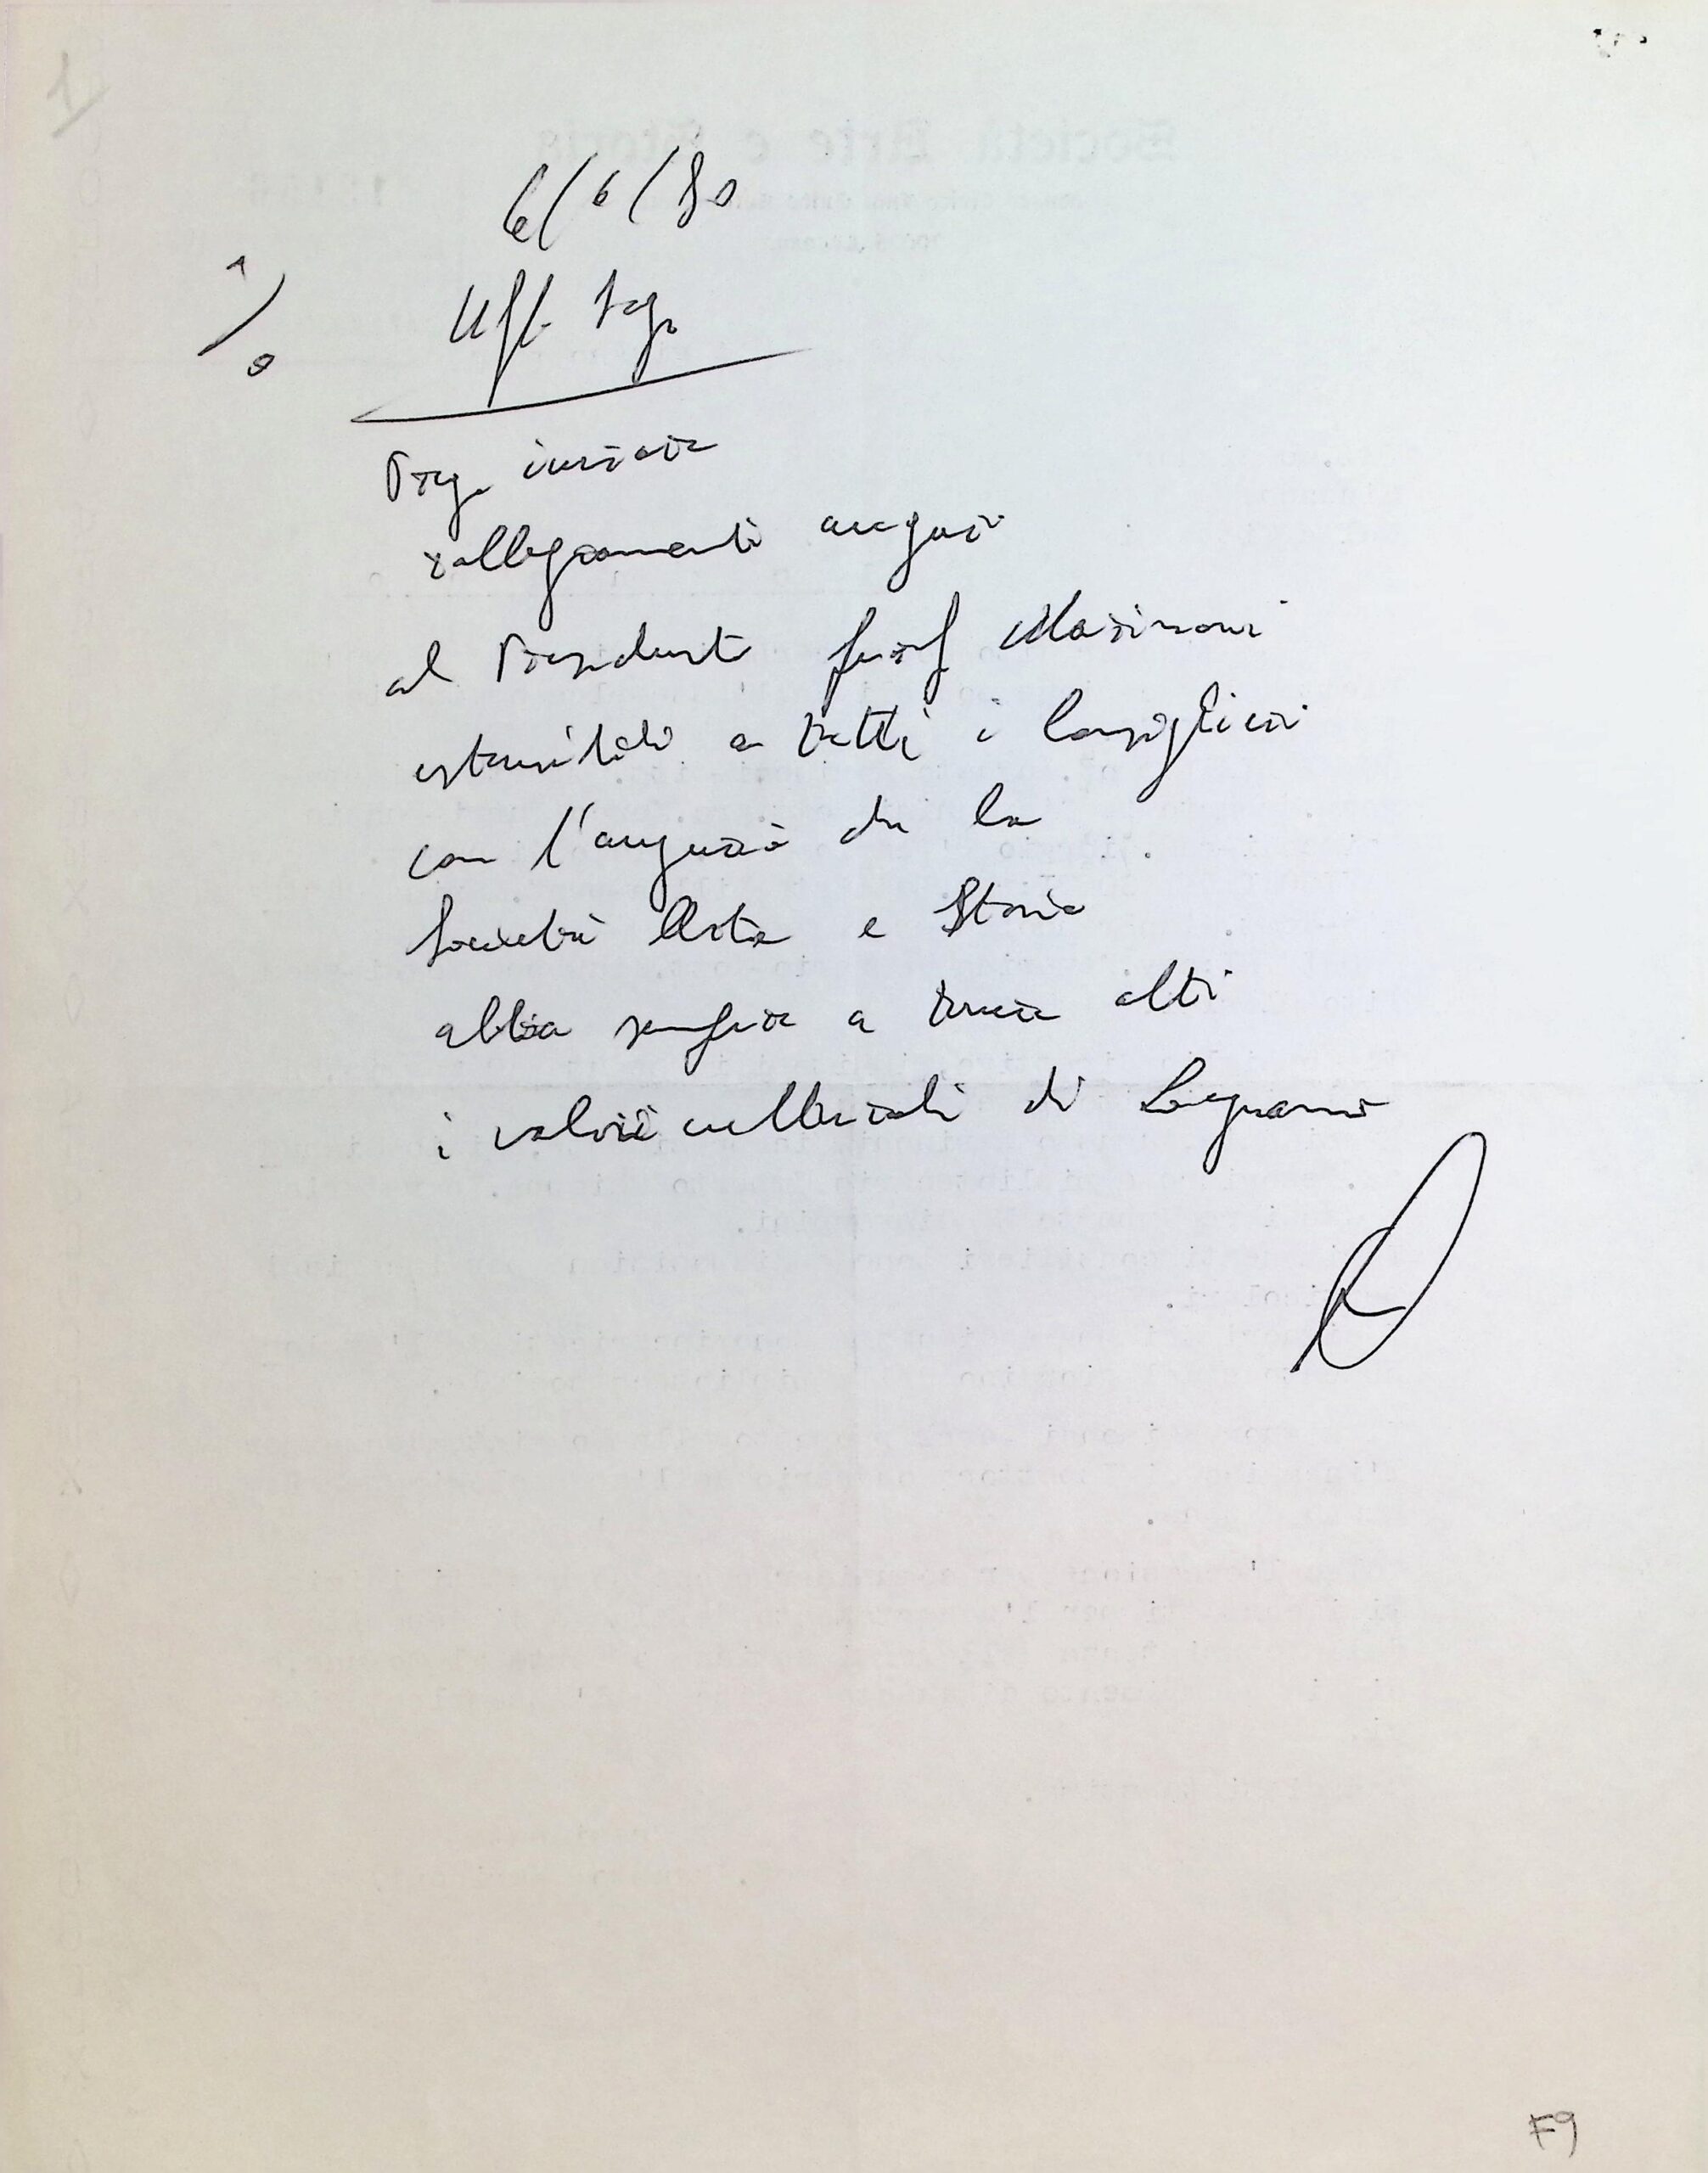 1
6/6/80
Uff. Seg.
Preg. inviare
rallegramenti auguri
al Presidente prof Marinoni
estensibili a tutti i Consiglieri
con l'augurio che la
Società Arte e Storia
abbia sempre a tenere alti
i valori culturali di Legnano
F9